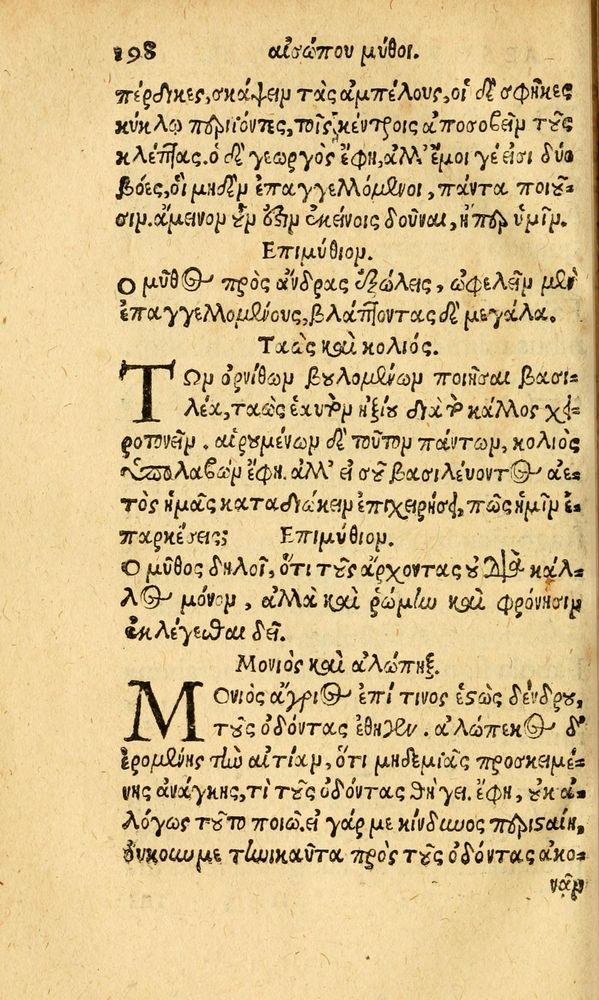 198 αἰσώπου μύθοι.
πέρδικες, σκάψειν τὰς ἀμπέλους, οἱ δὲ σφῆκες
κύκλῳ περιϊόντες, τοῖς κέντροις ἀποσοβεῖν τοὺς
κλέπτας. ὁ δὲ γεωργὸς ἔφη, ἀλλ' ἔμοι γέ εἰσι δύο
βόες, οἱ μηδὲν ἐπαγγελλόμενοι, πάντα ποιοῦ-
σιν. ἄμεινον οὖν ὅξιν ἐκείνοις δοῦναι, ἤπερ ὑμῖν.
Επιμύθιον.
Ο μῦθος πρὸς ἄνδρας ἐξώλεις, ὠφελεῖν μὲν
ἐπαγγελλομένους, βλάπτοντας δὲ μεγάλα.
Ταὼς καὶ κολιός.
Τῶν ὀρνίθων βουλομένων ποιῆσαι βασι-
λέα, ταὼς ἑαυτὸν ἠξίου διὰ τὸ κάλλος χει-
ροτονεῖν. αἱρουμένων δὲ τοῦτον πάντων, κολιὸς
ὑπολαβὼν ἔφη. ἀλλ' εἰ σοῦ βασιλεύοντος ἀε-
τὸς ἡμᾶς καταδιώκειν ἐπιχειρήσει, πῶς ἡμῖν ἐ-
παρκέσεις; Επιμύθιον.
Ο μῦθος δηλοῖ, ὅτι τοὺς ἄρχοντας οὐ διὰ κάλ-
λος μόνον, ἀλλὰ καὶ ῥώμην καὶ φρόνησιν
ἐκλέγεσθαι δεῖ.
Μονιὸς καὶ ἀλώπηξ.
Μονιὸς ἄγριος ἐπί τινος ἑστὼς δένδρου,
τοὺς ὀδόντας ἔθηγεν. ἀλώπεκος δ'
ἐρομένης τὴν αἰτίαν, ὅτι μηδεμιᾶς προσκειμέ-
νης ἀνάγκης, τί τοὺς ὀδόντας θήγει. ἔφη, οὐκ ἀ-
λόγως τοῦτο ποιῶ. εἰ γάρ με κίνδυνος περισταίη,
οὐκ οὖν με τηνικαῦτα πρὸς τοὺς ὀδόντας ἀκο-
νᾶν